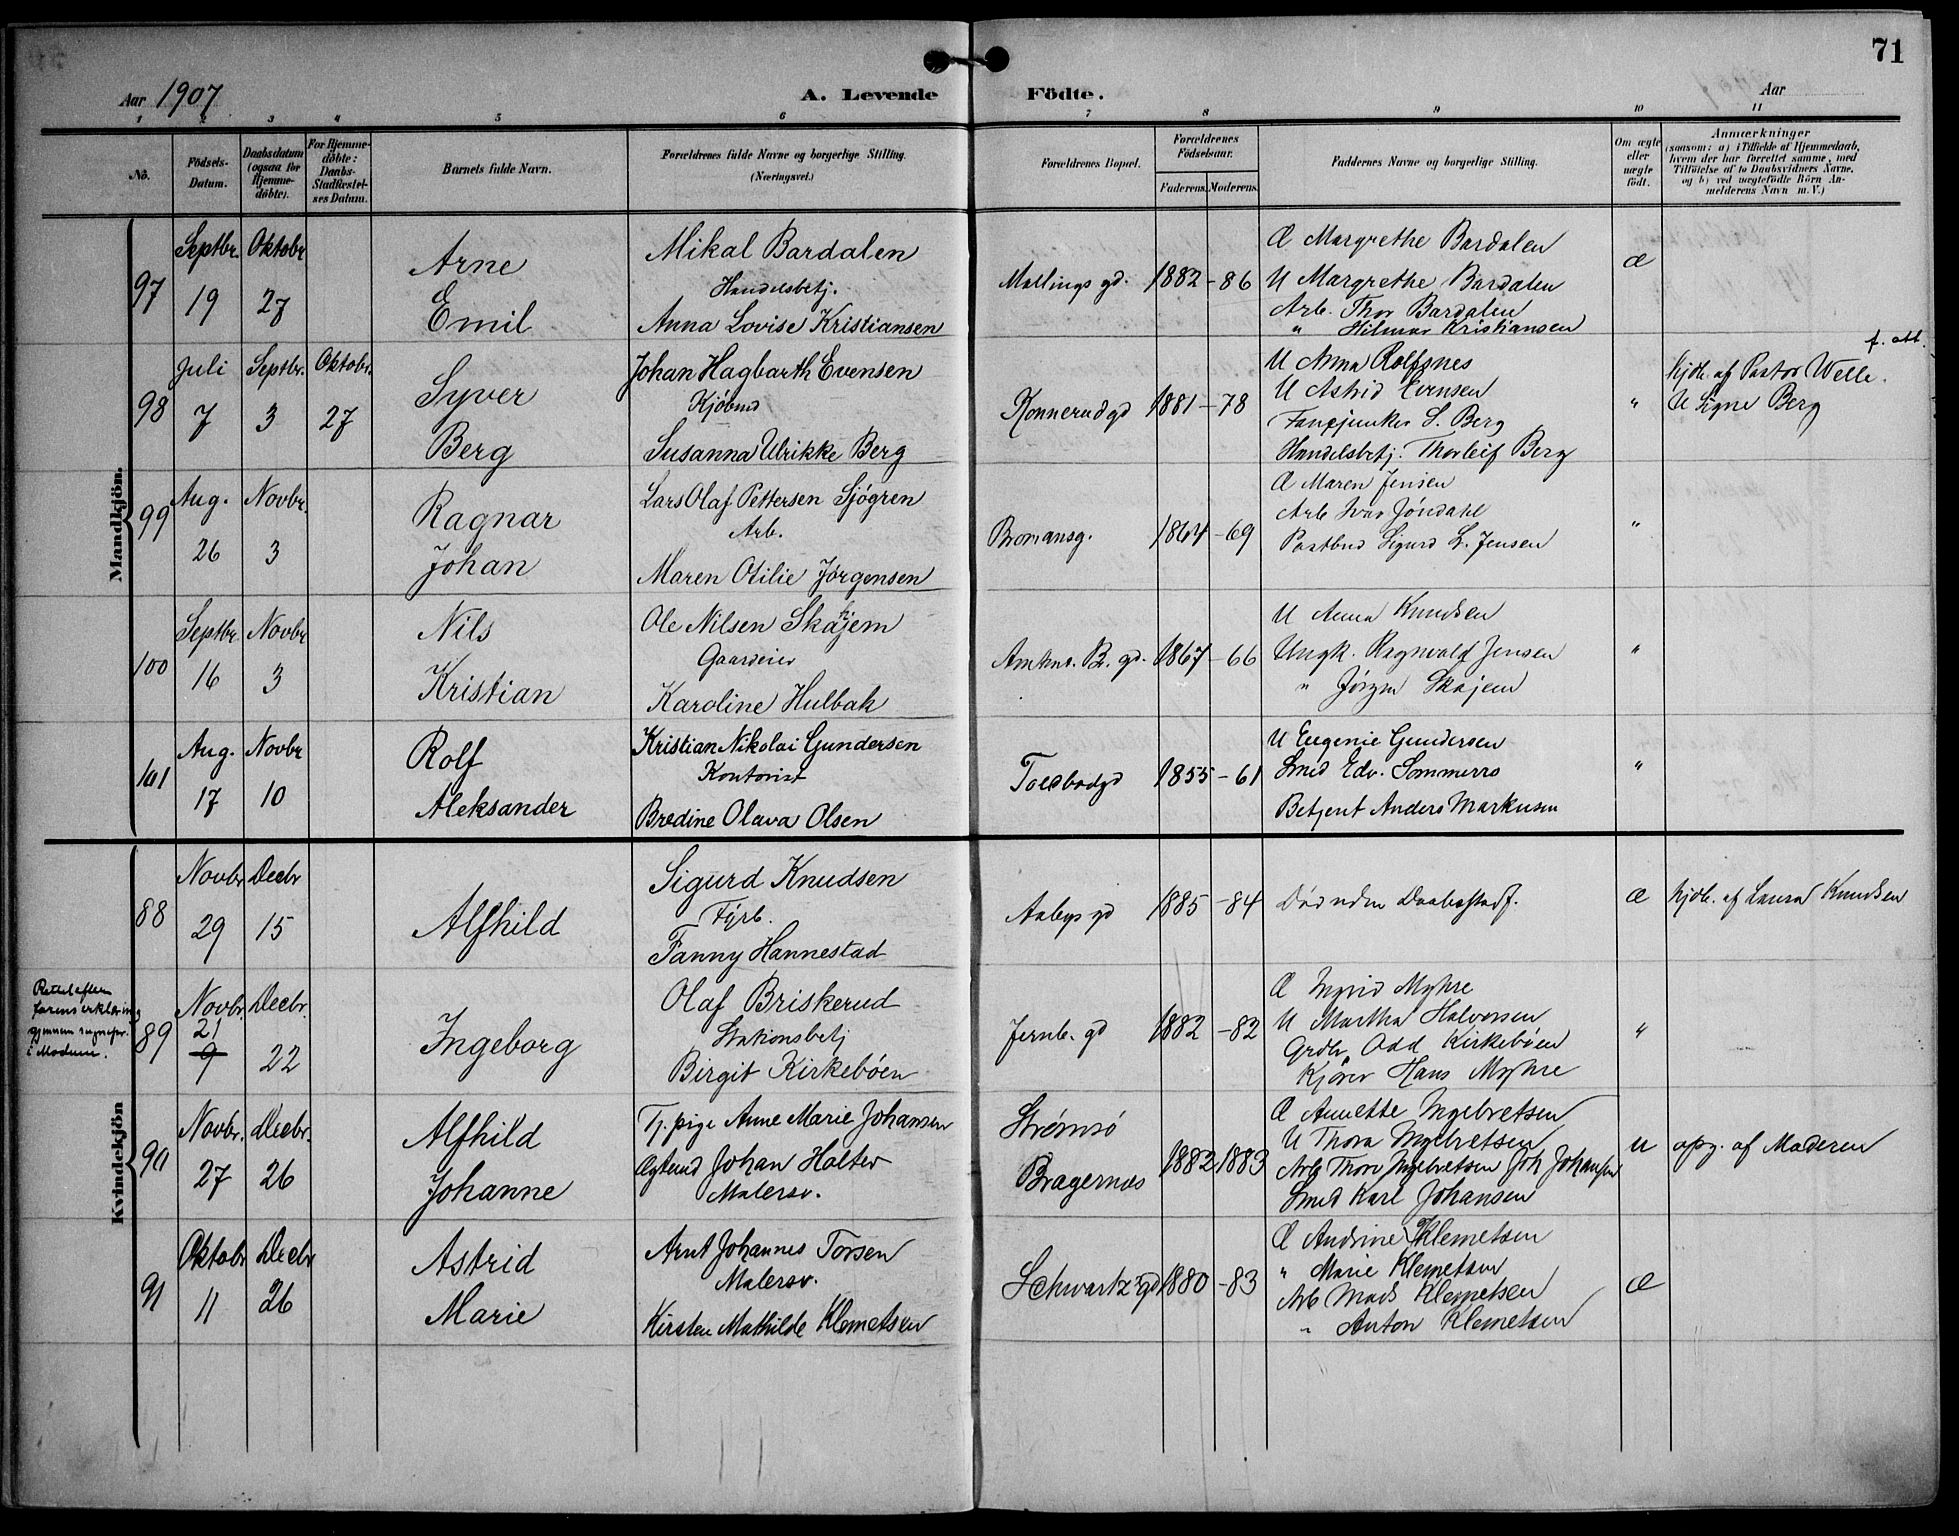 71
Aar 1907
A. Levende Födte.
Aar
1 2 3 4 5 6 7 8 9 10 11
No.
Födsels-Datum.
Daabsdatum (ogsaa for Hjemme-döbte).
For Hjemme-döbte: Daabs-Stadfæstel-ses Datum.
Barnets fulde Navn.
Forældrenes fulde Navne og borgerlige Stilling. (Næringsvei.)
Forældrenes Bopæl.
Forældrenes Födselsaar.
Faderens. Moderens.
Faddernes Navne og borgerlige Stilling.
Om ægte eller uægte födt.
Anmærkninger
(saasom: a) i Tilfælde af Hjemmedaab, hvem der har forrettet samme, med Tilföielse af to Daabsvidners Navne, og b) ved uægtefödte Börn Anmelderens Navn m. V.)
Mandkjön.
97
Septbr. 19
Oktobr 27
Arne
Emil
Mikal Bardalen
Handelsbetj.
Anna Lovise Kristiansen
Mallings gd.
1882 - 86
Æ Margrethe Bardalen
U Margrethe Bardalen
Arb. Thor Bardalen
" Hilmar Kristiansen
æ
98
Juli 7
Septbr. 3
Oktobr. 27
Syver
Berg
Johan Hagbarth Evensen
Kjøbmd
Susanna Ulrikke Berg
Konnerudgd
1881 - 78
U Anna Rolfsnes
U Astrid Evensen
Fanejunker S. Berg
Handelsbetj. Thorleif Berg
"
f. att.
hjdb. af Pastor Welle.
U Signe Berg
99
Aug. 26
Novbr. 3
Ragnar
Johan
Lars Olaf Pettersen Sjögren
Arb.
Maren Otilie Jørgensen
Bromansg.
1864 - 69
Æ Maren Jensen
Arb Ivar Jöndahl
Postbud Sigurd L. Jensen
"
100
Septbr. 16
Novbr 3
Nils
Kristian
Ole Nilsen Skajem
Gaardeier
Karoline Hulbak
Amtms. B. gd.
1867 - 66
U Anna Knudsen
Ungk. Ragnvald Jensen
" Jörgen Skajem
"
101
Aug. 17
Novbr 10
Rolf
Aleksander
Kristian Nikolai Gundersen
Kontorist
Bredine Olava Olsen
Toldbodgd
1855 - 61
U Eugenie Gundersen
Smed Edv. Sommerro
Betjent Anders Markusen
"
Kvindekjön
88
Novbr 29
Decbr 15
Alfhild
Sigurd Knudsen
Fyrb.
Fanny Hannestad
Aabys gd
1885 - 84
Död uden Daabsstadf.
æ
hjdb. af Laura Knudsen
Rettet efter
farens erklæring
gjennem sogneprs.
i Modum.
89
Novbr. 21
9
Decbr. 22
Ingeborg
Olaf Briskerud
Stationsbetj
Birgit Kirkebøen
Jernb. gd
1882 - 82
Æ Ingrid Myhre
U Martha Halvorsen
Grdbr. Odd Kirkebøen
Kjører Hans Myhre
"
90
Novbr. 27
Decbr. 26
Alfhild
Johanne
Tj. pige Anne Marie Johansen
Ægtemd Johan Holter
Malersv.
Strømsø
Bragernæs
1882 1883
Æ Annette Ingebretsen
U Thora Ingebretsen
Arb Thorv Ingebretsen Joh Johansen
Smed Karl Johansen
u
opg. af Moderen
91
Oktobr 11
Decbr 26
Astrid
Marie
Arnt Johannes Torsen
Malersv.
Kirsten Mathilde Klemetsen
Schwartz' gd
1880 - 83
Æ Andrine Klemetsen
" Marie Klemetsen
Arb Mads Klemetsen
" Anton Klemetsen
æ